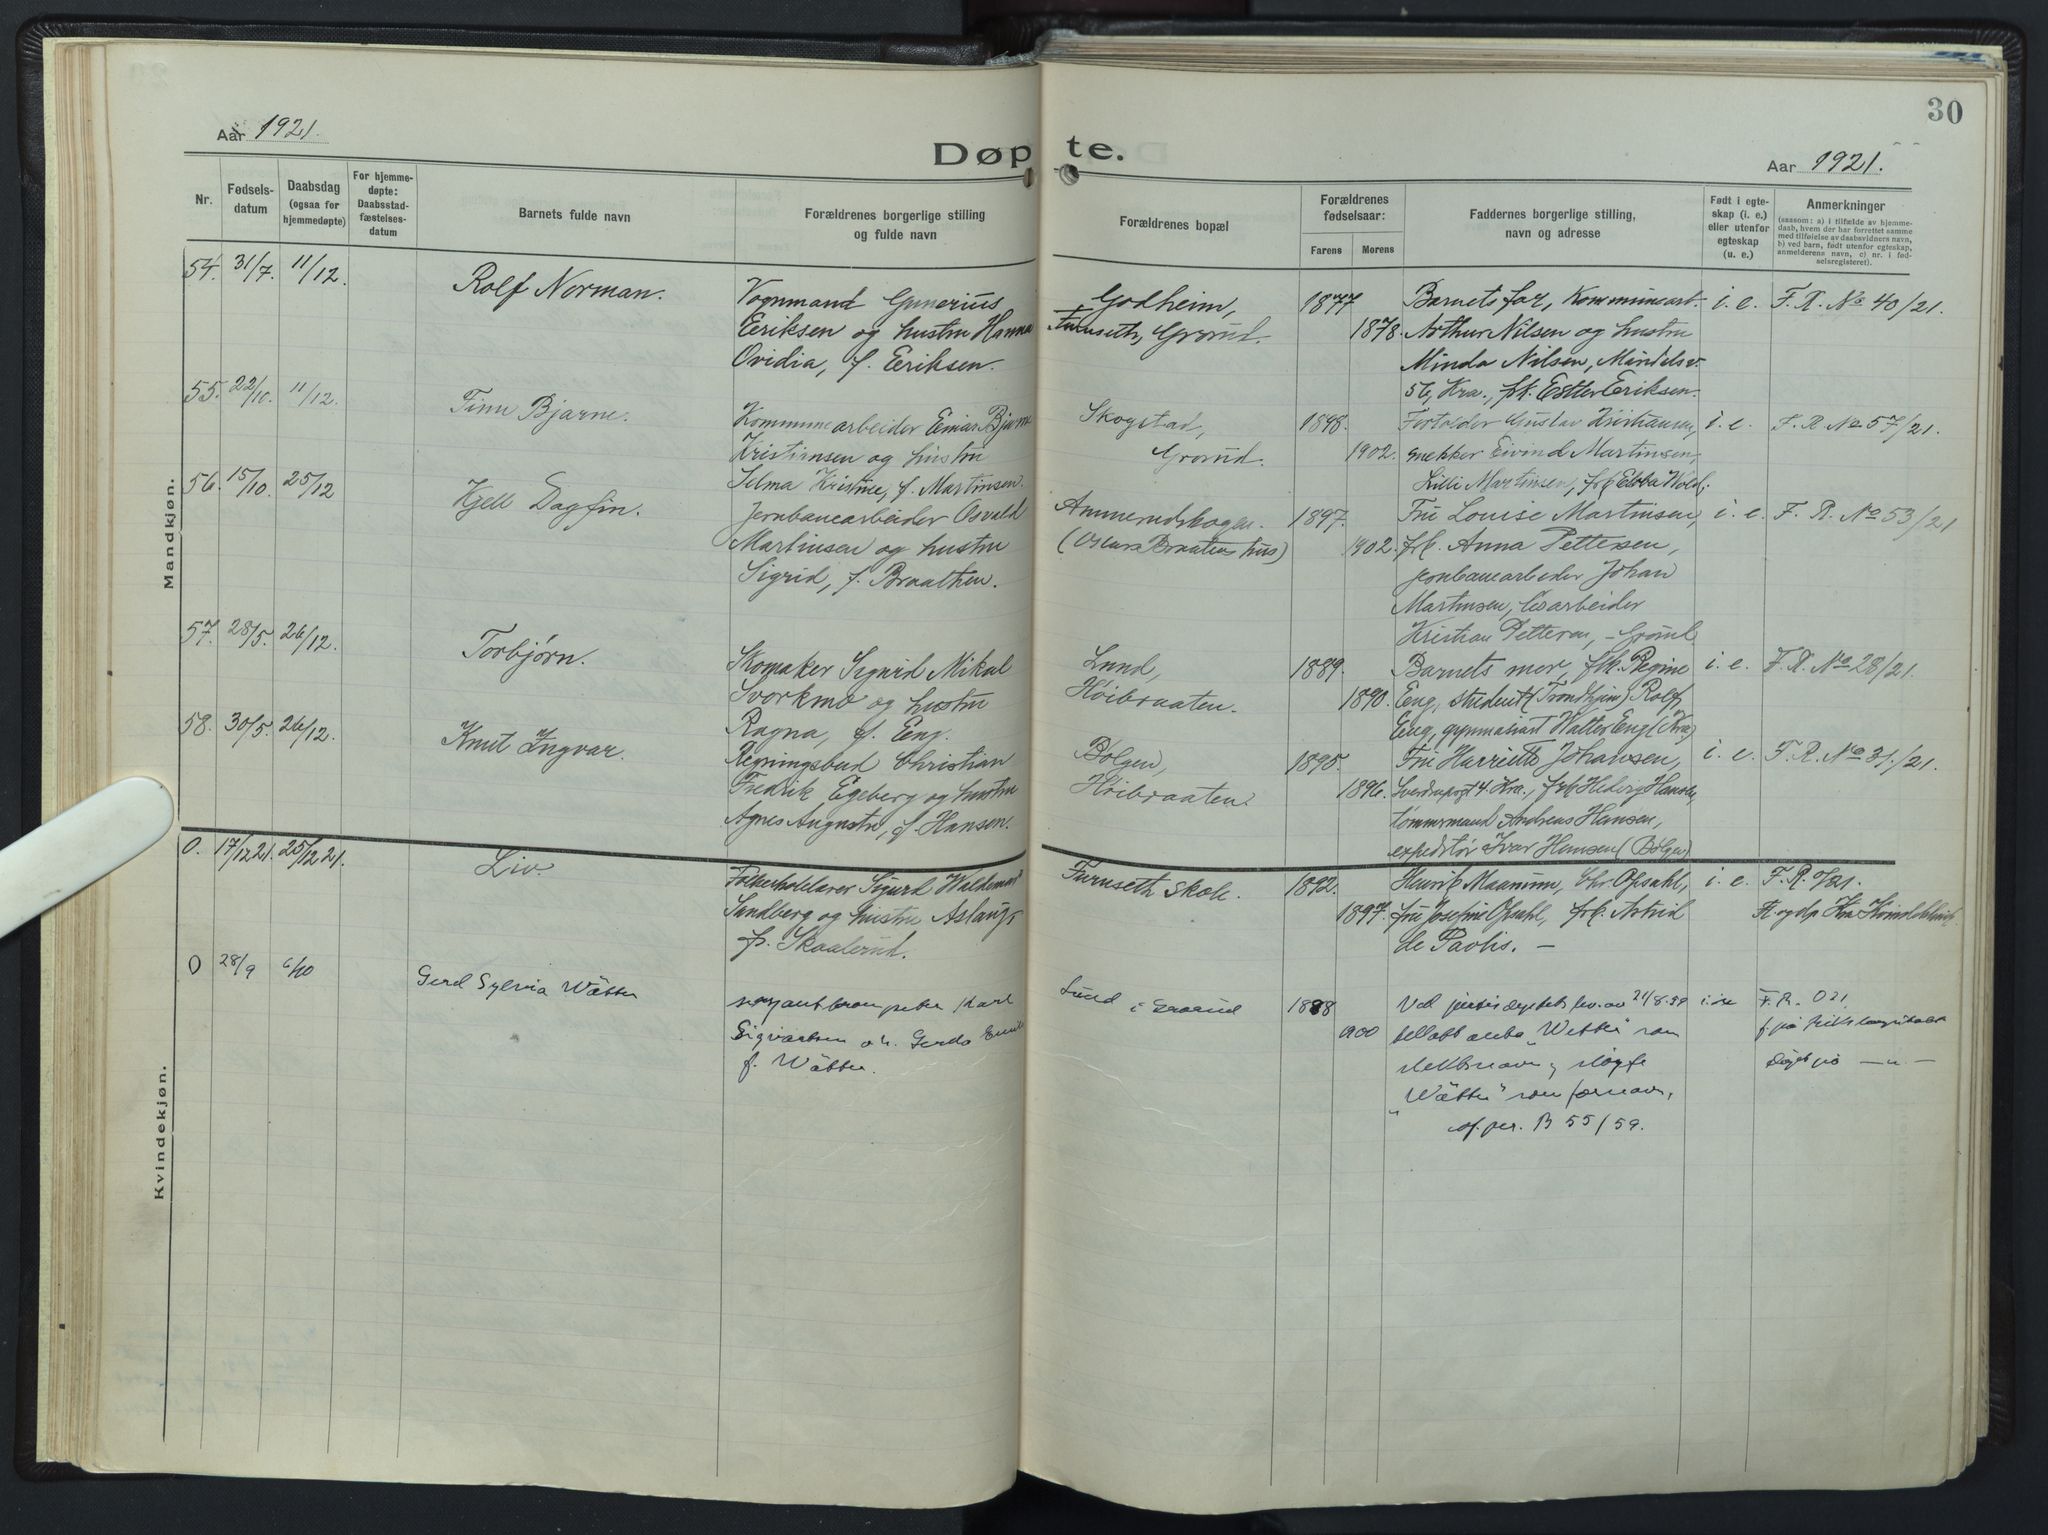 30
Aar 1921.
Døpte.
Aar 1921.
Nr.
Fødselsdatum
Daabsdag (ogsaa for hjemmedøpte)
For hjemmedøpte: Daabsstadfæstelsesdatum
Barnets fulde navn
Forældrenes borgerlige stilling og fulde navn
Forældrenes bopæl
Forældrenes fødselsaar:
Farens
Morens
Faddernes borgerlige stilling, navn og adresse
Født i egteskap (i. e.) eller utenfor egteskap (u. e.)
Anmerkninger
(saasom: a) i tilfælde av hjemmedaab, hvem der har forrettet samme med tilføielse av daabsvidners navn, b) ved barn, født utenfor egteskap, anmelderens navn, c) nr. i fødselsregisteret).
Mandkjøn.
54. 31/7. 11/12. Rolf Norman.
Vognmand Gunerius
Eriksen og hustru Hanna
Ovidia, f. Eriksen.
Godheim,
Furuseth, Grorud.
1877
1878.
Barnets far, Kommunearb.
Arthur Nilsen og hustru
Minda Nilsen,
56, Kra., frk. Esther Eriksen.
i. e. F. R. No 40/21.
55. 22/10. 11/12. Finn Bjarne.
Kommunearbeider Einar Bjarne
Kristiansen og hustru
Selma Kristine, f. Martinsen.
Skogstad,
Grorud.
1898.
1902.
Gustav Kristiansen,
snekker Eivind Martinsen,
Lilli Martinsen, frk. Ebba Wold,
i. e. F. R. No 57/21.
56. 15/10. 25/12 Kjell Dagfin.
Jernbanearbeider Osvald
Martinsen og hustru
Sigrid, f. Braathen.
Ammerudskogen.
(Oskar Braatens hus)
1897.
1902.
Fru Louise Martinsen,
frk. Anna Pettersen,
jernbanearbeider Johan
Martinsen,
Kristian Petterson, – Grorud.
i. e. F. R. No 53/21
57. 28/5. 26/12. Torbjørn.
Skomaker Sigurd Mikal
Svorkmo og hustru
Ragna, f. Eng.
Lund,
Høibraaten.
1889.
1890.
Barnets mor, frk. Regine
Eng, student (Trondhjem) Rolf
Eng, gymnasiast Walter Eng (Kra)
i. e. F. R. No 28/21.
58. 30/5. 26/12. Knut Ingvar.
Regningsbud Christian
Fredrik Egeberg og hustru
Agnes Auguste, f. Hansen.
Bølgen,
Høibraaten.
1895.
1896.
Fru Harriette Johansen,
Sverdrupsgt 4. Kra., frk Hedvig Hansen,
tømmermand Andreas Hansen,
expeditør Ivar Hansen (Bølgen)
i. e. F. R. No 31./21.
Kvindekjøn.
0. 17/12 21. 25/12 21. Liv.
Folkeskolelærer Sigurd Waldemar
Sandberg og hustru Aslaug,
f. Skaalerud.
Furuseth skole.
1892.
1897.
Henrik Maanum, Chr. Opsahl,
fru Josefine Opsahl, frk. Astrid
de Paolis. –
i. e. F. R. 0/21.
F. og dp Kra Kvindeklinik.
0 28/9 6/10 Gerd Sylvia Wätter
Karl
Sigvartsen o h. Gerda
f. Wätter.
Lund i Grorud
1888
1900
Ved justisdeptets bev. av
tillatt anta "Wetter" som
slektsnavn og sløyfe
"Wätter" som fornavn,
cf. per. B 55/59.
F. R. 0 21.
f. på Rikshospitalet
Døpt på — " —